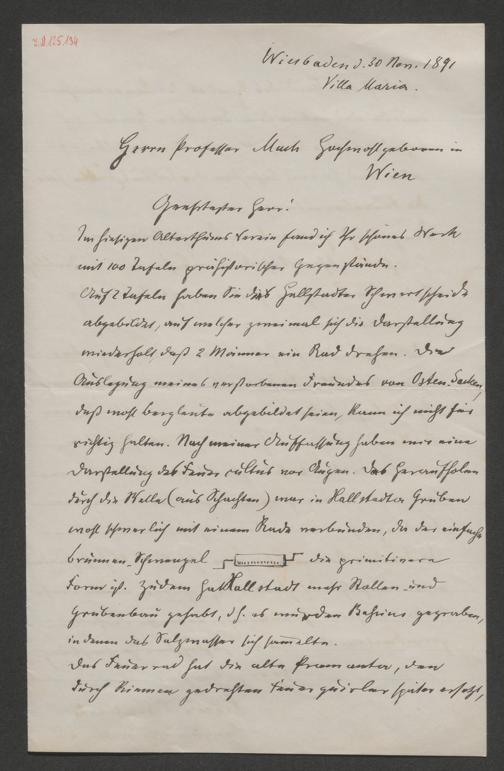 Wiesbaden d. 30 Nov. 1891
Villa Maria.
Herrn Professor Much Hochwohlgeboren in
Wien
Geehrtester Herr!
Im hiesigen Alterthums Verein fand ich Ihr schönes Werk
mit 100 Tafeln prähistorischer Gegenstände.
Auf 2 Tafeln haben Sie die Hallstadter Schwertscheide
abgebildet, auf welcher zweimal sich die Darstellung
wiederholt, daß 2 Männer ein Rad drehen. Die
Auslegung meines verstorbenen Freundes von Osten-Sacken,
daß wohl Bergleute abgebildet seien, kann ich nicht für
richtig halten. Nach meiner Auffassung haben wir eine
Darstellung des Feuer cultus vor Augen. Das Heraufholen
durch die Welle (aus Schachten) war in Hallstadter Gruben
wohl schwerlich mit einem Rade verbunden, da der einfache
Brunnen-Schwengel die primitivere
Form ist. Zudem hat Hallstadt mehr Stollen- und
Grubenbau gehabt, d.h. es wurden Bassins gegraben,
in denen das Salzwasser sich sammelte.
Das Feuerrad hat die alte Pramantha, den
durch Riemen gedrehten Feuerquirler später ersetzt,